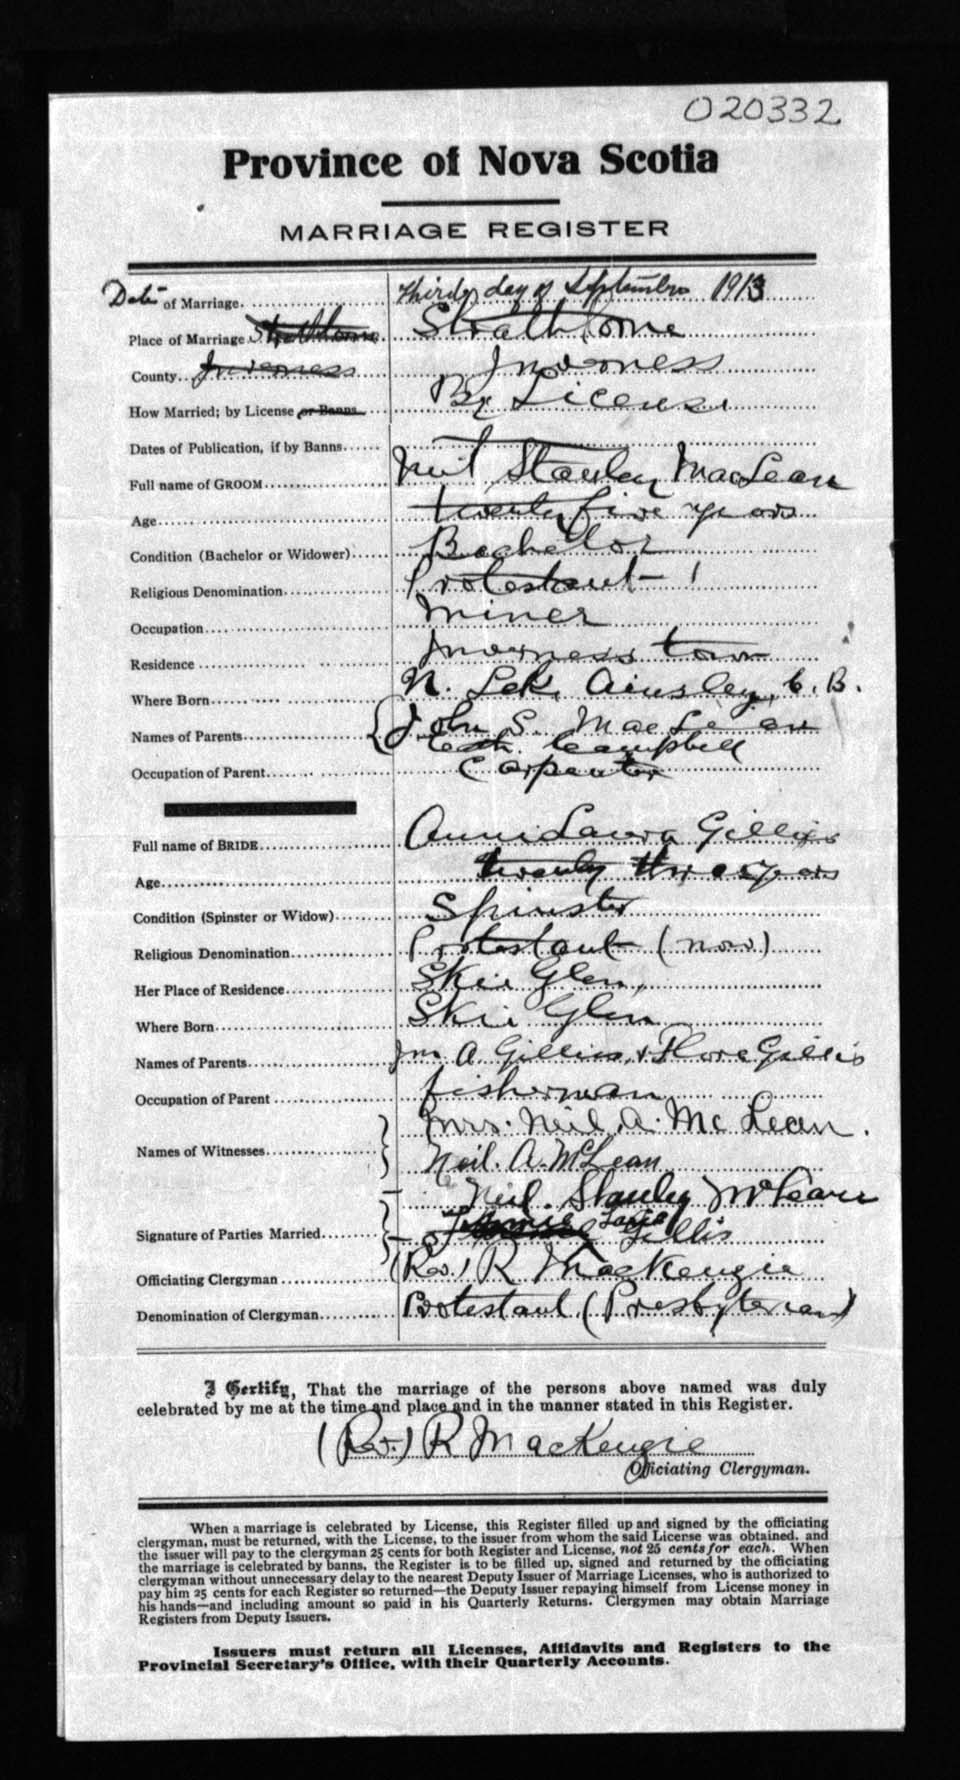 020332
Province of Nova Scotia
MARRIAGE REGISTER
Date of Marriage Third day of September 1913
Place of Marriage Strathlorne Strathlorne
County Inverness Inverness
How Married; by License or Banns By License
Dates of Publication, if by Banns
Full name of GROOM Neil Stanley MacLean
Age twenty five years
Condition (Bachelor or Widower) Bachelor
Religious Denomination Protestant
Occupation Miner
Residence Inverness town
Where Born N. Lake Ainsley, C. B.
Names of Parents John S. MacLean
Campbell
Occupation of Parent Carpenter
Full name of BRIDE Annie Laura Gillis
Age twenty three years
Condition (Spinster or Widow) Spinster
Religious Denomination Protestant (now)
Her Place of Residence Skie Glen,
Where Born Skie Glen
Names of Parents Jn A. Gillies, & Flora Gillis
Occupation of Parent fisherman
Mrs. Neil A. McLean.
Names of Witnesses
Neil. A. McLean
Neil Stanley McLean
Signature of Parties Married Gillis
Officiating Clergyman (Rev.) R MacKenzie
Denomination of Clergyman Protestant (Presbyterian)
I Certify, That the marriage of the persons above named was duly
celebrated by me at the time and place and in the manner stated in this Register.
(Rev.) R MacKenzie
Officiating Clergyman.
When a marriage is celebrated by License, this Register filled up and signed by the officiating
clergyman, must be returned, with the License, to the issuer from whom the said License was obtained, and
the issuer will pay to the clergyman 25 cents for both Register and License, not 25 cents for each. When
the marriage is celebrated by banns, the Register is to be filled up, signed and returned by the officiating
clergyman without unnecessary delay to the nearest Deputy Issuer of Marriage Licenses, who is authorized to
pay him 25 cents for each Register so returned—the Deputy Issuer repaying himself from License money in
his hands—and including amount so paid in his Quarterly Returns. Clergymen may obtain Marriage
Registers from Deputy Issuers.
Issuers must return all Licenses, Affidavits and Registers to the
Provincial Secretary's Office, with their Quarterly Accounts.